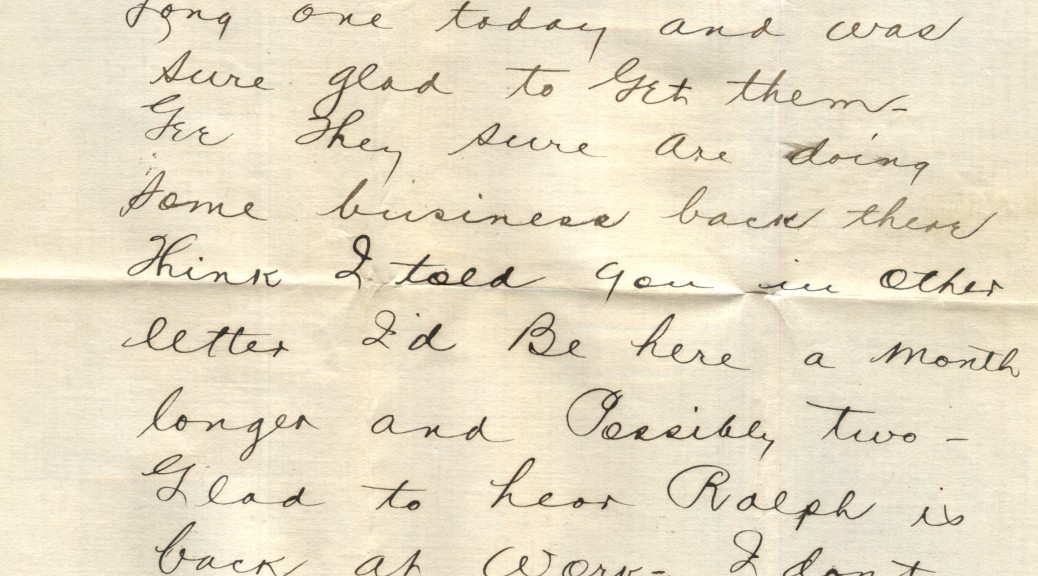 Long one today and was
sure glad to Get them-
Gee They sure Are doing
some business back there
Think I told you in Other
letter I'd Be here a Month
longer and Possibly two -
Glad to hear Ralph is
back at Work- I dont